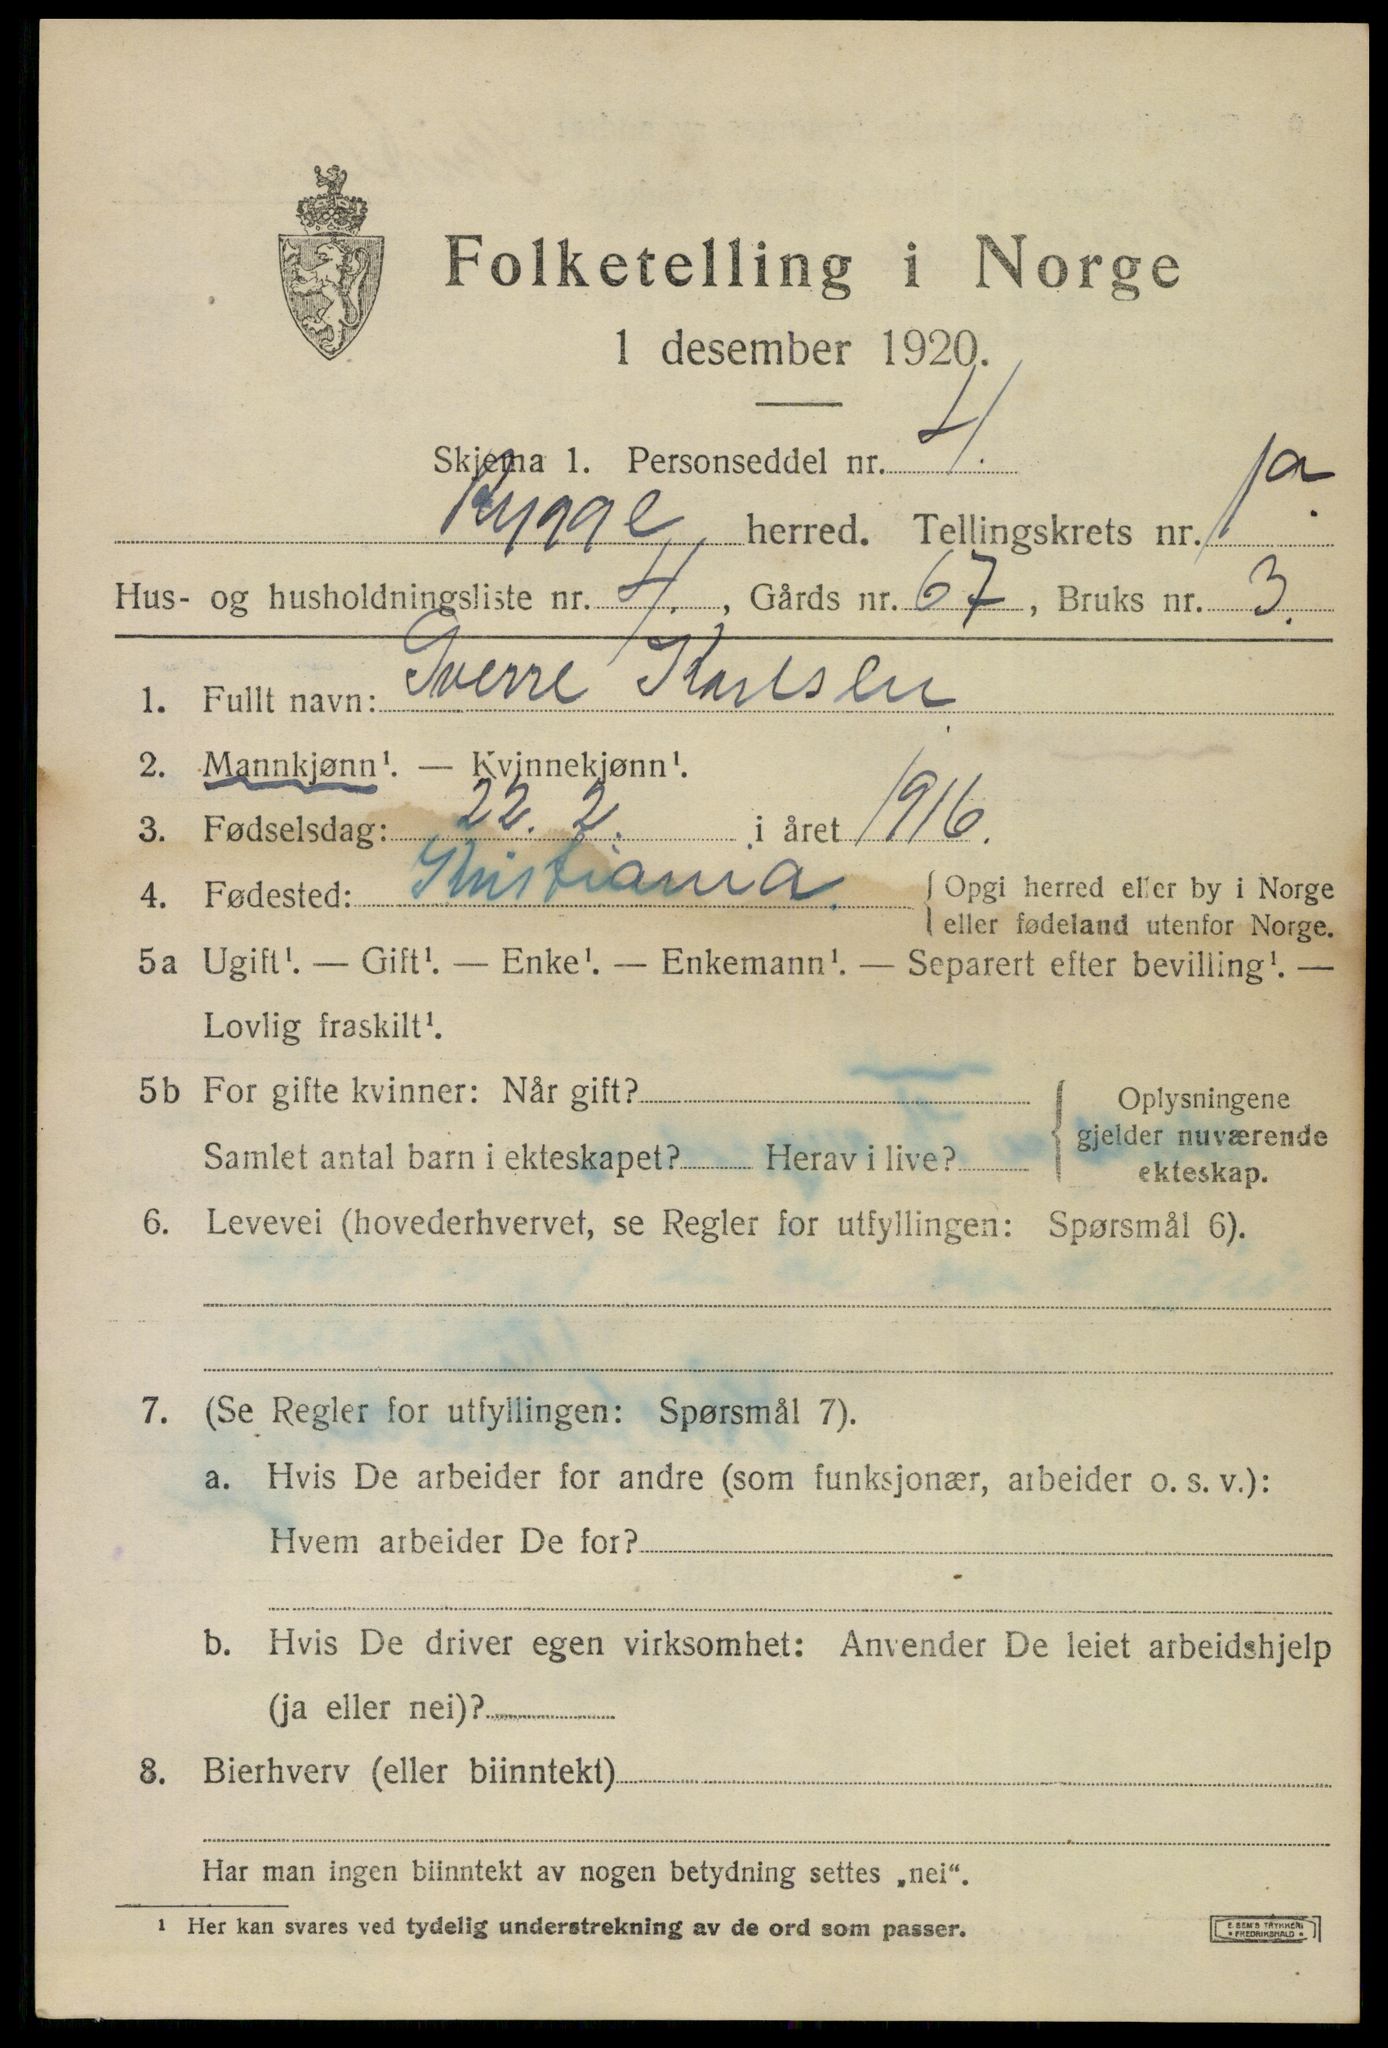 Folketelling i Norge
1 desember 1920.
Skjema 1. Personseddel nr. 4.
Rygge herred. Tellingskrets nr. 1a.
Hus- og husholdningsliste nr. 4., Gårds nr. 67, Bruks nr. 3.
1. Fullt navn: Sverre Karlsen
2. Mannkjønn¹. — Kvinnekjønn¹.
3. Fødselsdag: 22. 2. i året 1916.
4. Fødested: Kristiania. { Opgi herred eller by i Norge
eller fødeland utenfor Norge.
5a Ugift¹. — Gift¹. — Enke¹. — Enkemann¹. — Separert efter bevilling¹. —
Lovlig fraskilt¹.
5b For gifte kvinner: Når gift?
Samlet antal barn i ekteskapet? Herav i live?
Oplysningene
gjelder nuværende
ekteskap.
6. Levevei (hovederhvervet, se Regler for utfyllingen: Spørsmål 6).
7. (Se Regler for utfyllingen: Spørsmål 7).
a. Hvis De arbeider for andre (som funksjonær, arbeider o. s. v.):
Hvem arbeider De for?
b. Hvis De driver egen virksomhet: Anvender De leiet arbeidshjelp
(ja eller nei)?
8. Bierhverv (eller biinntekt)
Har man ingen biinntekt av nogen betydning settes „nei“.
¹ Her kan svares ved tydelig understrekning av de ord som passer.
E. SEM'S TRYKKERI
* FREDRIKSHALD *